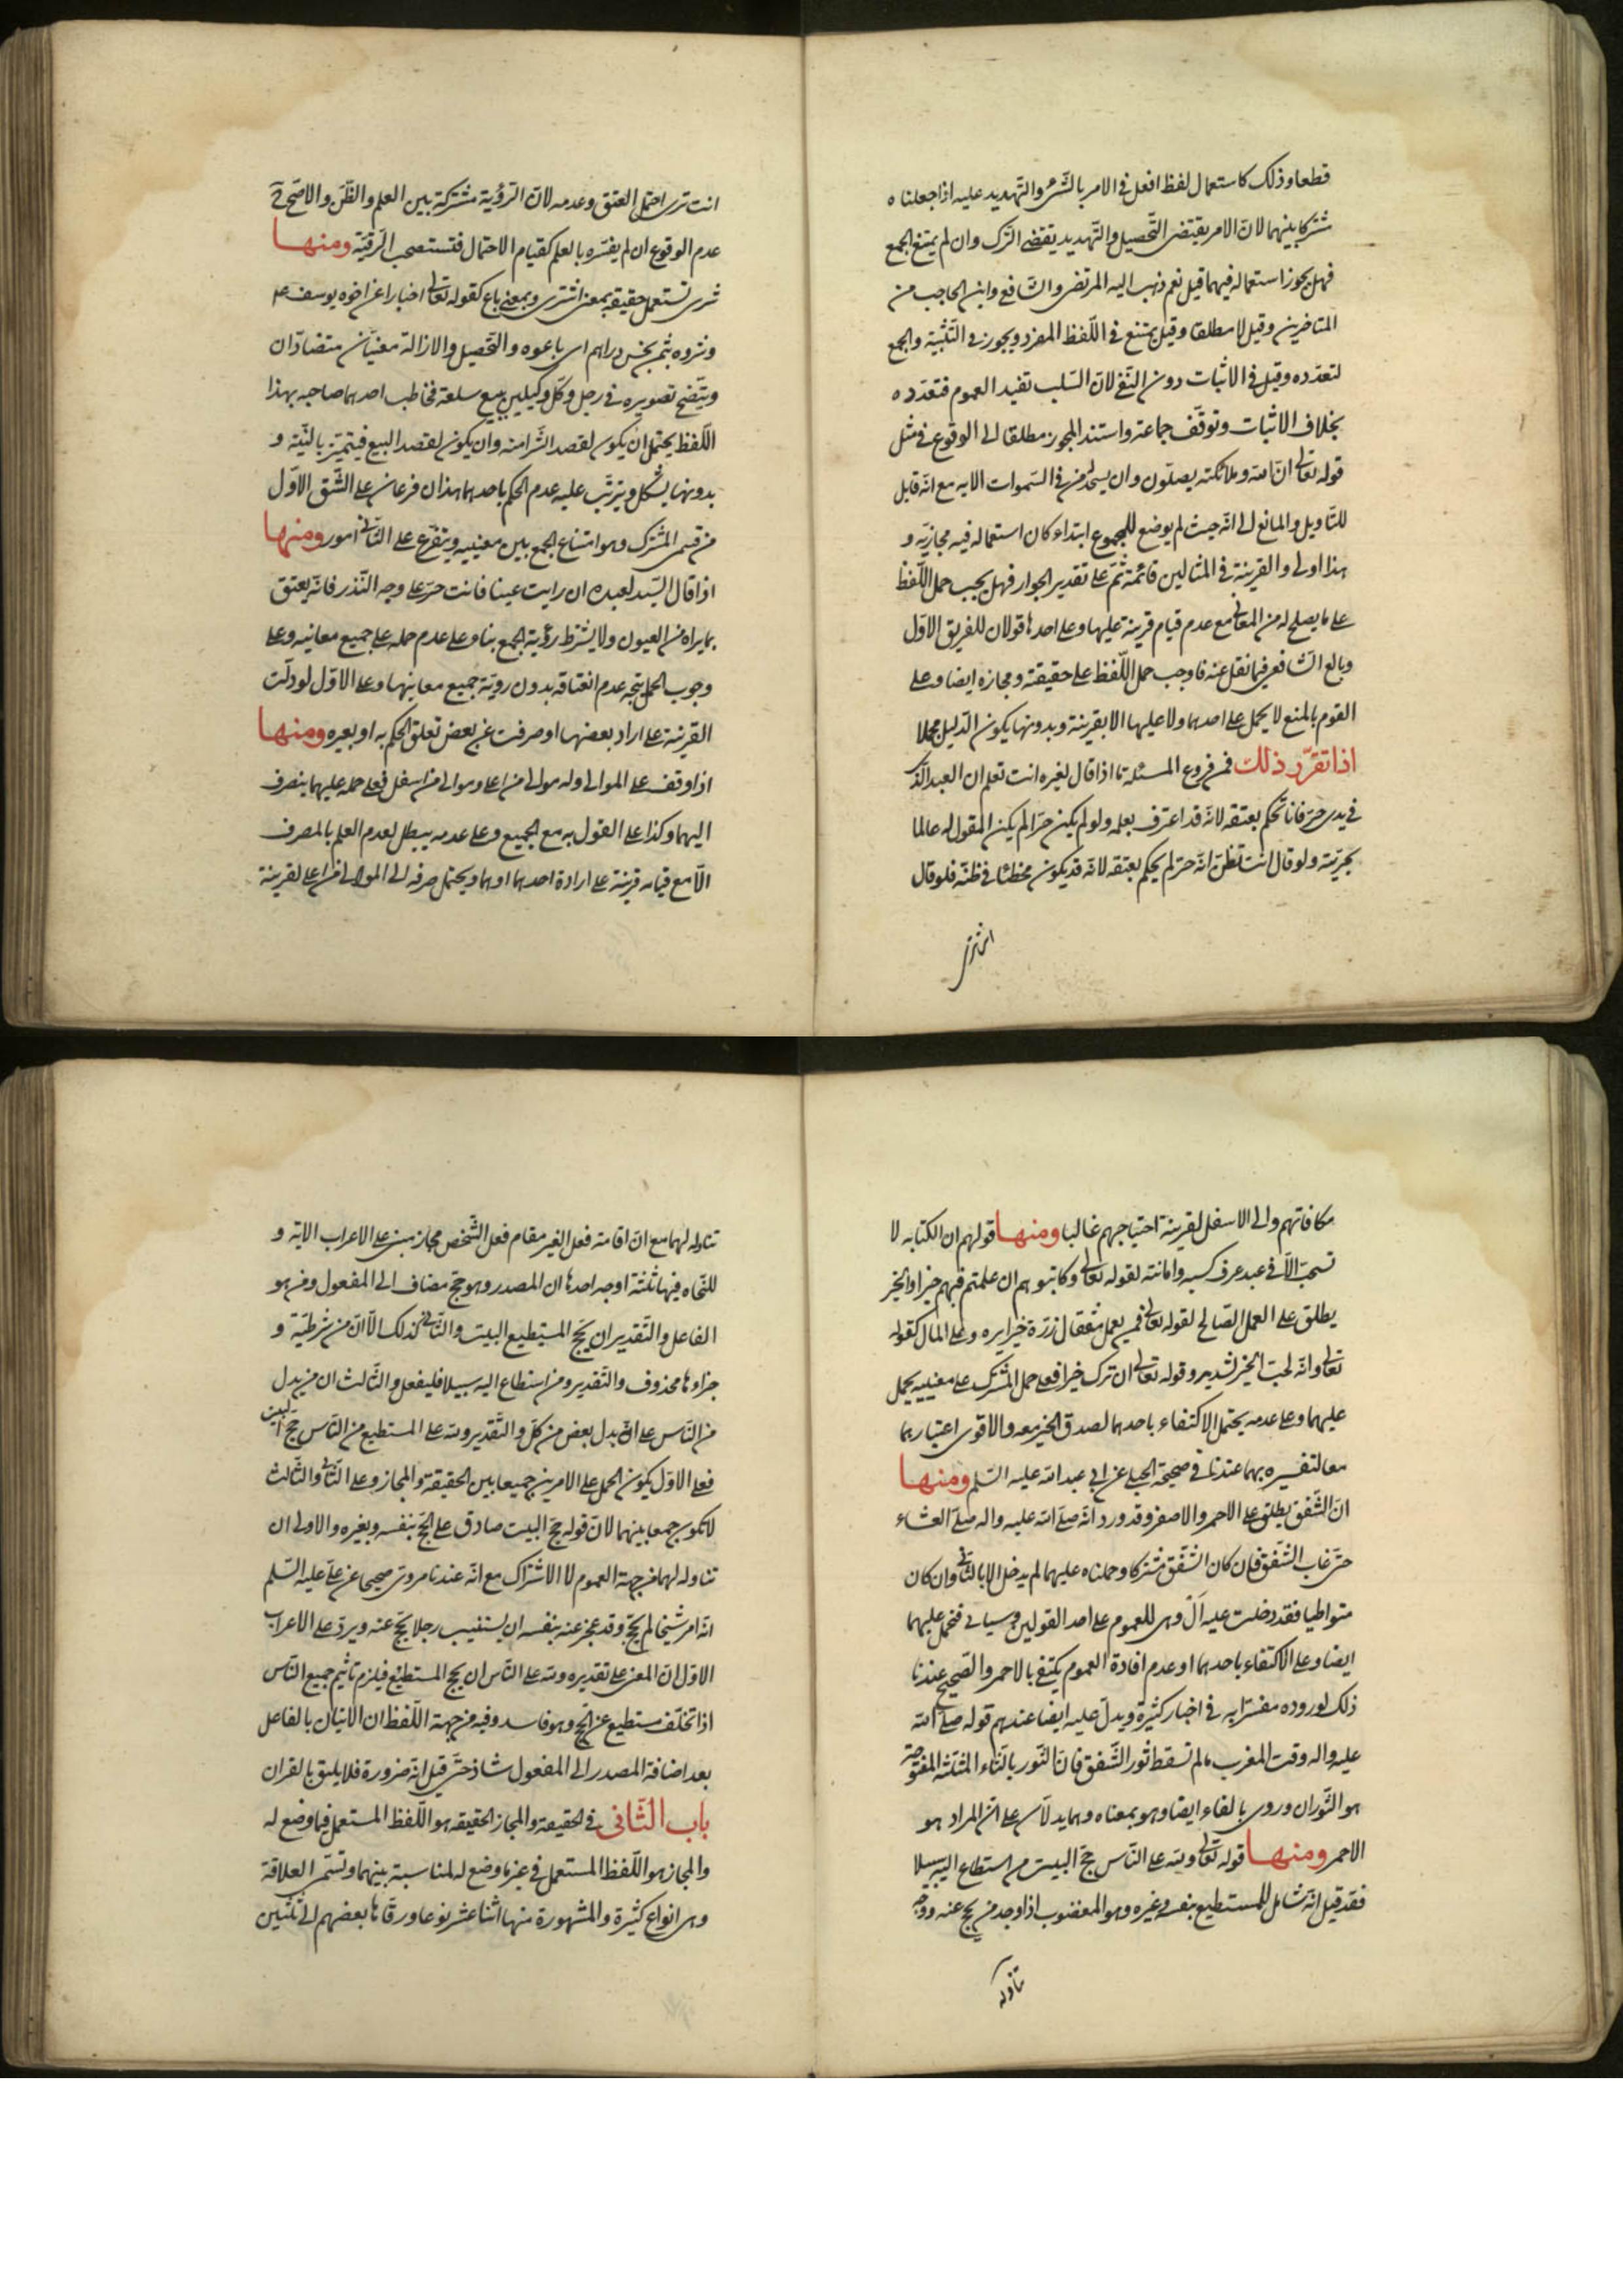 قطعا وذلك كاستعمال لفظ افعل فى الامر بالشىء والتهديد عليه اذا جعلناه
مشتركا بينهما لان الامر يقتضى التحصيل والتهديد يقتضى الترك وان لم يمتنع الجمع
فهل يجوز استعماله فيهما قيل نعم ذهب اليه المرتضى والشافعى وابن الحاجب من
المتاخرين وقيل لا مطلقا وقيل يمتنع فى اللفظ المفرد ويجوز فى التثنية والجمع
لتعدده وقيل فى الاثبات دون النفى لان السلب تفيد العموم فتعدده
بخلاف الاثبات وتوقف جماعة واستند المجوز مطلقا الى الوقوع فى مثل
قوله تعالى ان الله وملائكته يصلون وان يسجد من فى السموات الايه مع انه قابل
للتاويل والمانع الى انه حيث لم يوضع للمجموع ابتداء كان استعماله فيه مجازيه و
هذا اولى والقرينة فى المثالين قائمة ثم على تقدير الجواز فهل يجب حمل اللفظ
على ما يصلح له من المعانى مع عدم قيام قرينة عليها وعلى احدها قولان للفريق الاول
وبالغ الشافعى فيما نقل عنه فاوجب حمل اللفظ على حقيقته ومجازه ايضا وعلى
القوم بالمنع لا يحمل على احدهما ولا عليها الا بقرينة وبدونها يكون الدليل مجملا
اذا تقرر ذلك فمن فروع المسئلة ما اذا قال لغيره انت تعلم ان العبد الذى
فى يدى حر فانا نحكم بعتقه لانه قد اعترف بعلمه ولو لم يكن حرا لم يكن المقول له عالما
بحريته ولو قال انت تظن انه حر لم يحكم بعتقه لانه قد يكون مخطئا فى ظنه فلو قال
انت ترى
انت ترى احتمل العتق وعدمه لان الرؤية مشتركة بين العلم والظن والاصح فى
عدم الوقوع ان لم يفسره بالعلم كقيام الاحتمال فتستصحب الرقية ومنها
شرى تستعمل حقيقة بمعنى اشترى وبمعنى باع كقوله تعالى اخبارا عن اخوه يوسف ع
وشروه بثمن بخس دراهم اى باعوه والتحصيل والازالة معنيان متضادان
ويتضح تصويره فى رجل وكل وكيلين ببيع سلعة فخاطب احدهما صاحبه بهذا
اللفظ يحتمل ان يكون لقصد الشرا منه وان يكون لقصد البيع فيتميز بالنية و
بدونها يشكل ويترتب عليه عدم الحكم باحدهما هذان فرعان على الشق الاول
من قسمى المشترك وهو امتناع الجمع بين معنييه ويتفرع على الثانى امور ومنها
اذا قال السيد لعبده ان رايت عينا فانت حر على وجه النذر فانه يعتق
بما يراه من العيون ولا يشترط رؤية الجمع بناء على عدم حمله على جميع معانيه وعلى
وجوب الحمل يتجه عدم انعتاقه بدون روية جميع معانيها وعلى الاول لو دلت
القرينة على اراد بعضها او صرفت عن بعض تعلق الحكم به او بغيره ومنها
اذا وقف على الموالى وله موالى من اعلى وموالى من اسفل فعلى حمله عليهما ينصرف
اليهما وكذا على القول به مع الجميع وعلى عدمه يبطل لعدم العلم بالمصرف
الا مع قيام قرينة على ارادة احدهما او هما ويحتمل صرفه الى الموالى من اعلى لقرينة
مكافاتهم والى الاسفل لقرينة احتياجهم غالبا ومنها قولهم ان الكتابه لا
تستحب الا فى عبد عرف كسبه وامانته لقوله تعالى وكاتبوهم ان علمتم فيهم خيرا والخير
يطلق على العمل الصالح لقوله تعالى فمن يعمل مثقال ذرة خيرا يره وعلى المال كقوله
تعالى وانه لحب الخير لشديد وقوله تعالى ان ترك خيرا فعلى حمل المشترك على معنييه يحمل
عليهما وعلى عدمه يحتمل الاكتفاء باحدهما لصدق الخير معه والاقوى اعتبارهما
معا لتفسيره بهما عندنا فى صحيحة الحلبى عن ابى عبد الله عليه السلم ومنها
ان الشفق يطلق على الاحمر والاصفر وقد ورد انه صلى الله عليه واله صلى العشاء
حتى غاب الشفق فان كان الشفق مشتركا وحملناه عليهما لم يدخل الا بالثانى وان كان
متواطيا فقد دخلت عليه ال وهى للعموم على احد القولين وسياتى فتحمل عليهما
ايضا وعلى الاكتفاء باحدهما او عدم افادة العموم يكتفى بالاحمر والصحيح عندنا
ذلك لوروده مفسرا به فى اخبار كثيرة ويدل عليه ايضا عندهم قوله صلى الله
عليه واله وقت المغرب ما لم تسقط ثور الشفق فان الثور بالثاء المثلثه المفتوحة
هو الثوران وروى بالفاء ايضا وهو بمعناه وهما يدلان على ان المراد هو
الاحمر ومنها قوله تعالى ولله على الناس حج البيت من استطاع اليه سبيلا
فقد قيل انه شامل للمستطيع بنفسه وغيره وهو المعضوب اذا وجد من يحج عنه ووجه
تناوله
تناوله لهما مع ان اقامة فعل الغير مقام فعل الشخص مجاز مبنى على الاعراب الاية و
للنحاه فيها ثلثة اوجه احدها ان المصدر وهو حج مضاف الى المفعول ومن هو
الفاعل والتقدير ان يحج المستطيع البيت والثانى كذلك الا ان من شرطية و
جزاوها محذوف والتقدير ومن استطاع اليه سبيلا فليفعل والثالث ان من بدل
من الناس على انه بدل بعض من كل والتقدير ولله على المستطيع من الناس حج البيت
فعلى الاول يكون الحمل على الامرين جميعا بين الحقيقة والمجاز وعلى الثانى والثالث
لا يكون جمعا بينهما لان قوله حج البيت صادق على الحج بنفسه وبغيره والاولى ان
تناوله لهما من جهة العموم لا الاشتراك مع انه عندنا مروى صحيحا عن على عليه السلم
انه امر شيخا لم يحج وقد عجز عنه بنفسه ان يستنيب رجلا يحج عنه ويرد على الاعراب
الاول ان المعنى على تقديره ولله على الناس ان يحج المستطيع فيلزم تاثيم جميع الناس
اذا تخلف مستطيع عن الحج وهو فاسد وفيه من جهة اللفظ ان الاتيان بالفاعل
بعد اضافة المصدر الى المفعول شاذ حتى قيل انه ضرورة فلا يليق بالقران
باب الثانى فى الحقيقة والمجاز الحقيقه هو اللفظ المستعمل فيما وضع له
والمجاز هو اللفظ المستعمل فى غير ما وضع له لمناسبة بينهما وتسمى العلاقة
وهى انواع كثيرة والمشهورة منها اثنا عشر نوعا ورقاها بعضهم الى ثلثين